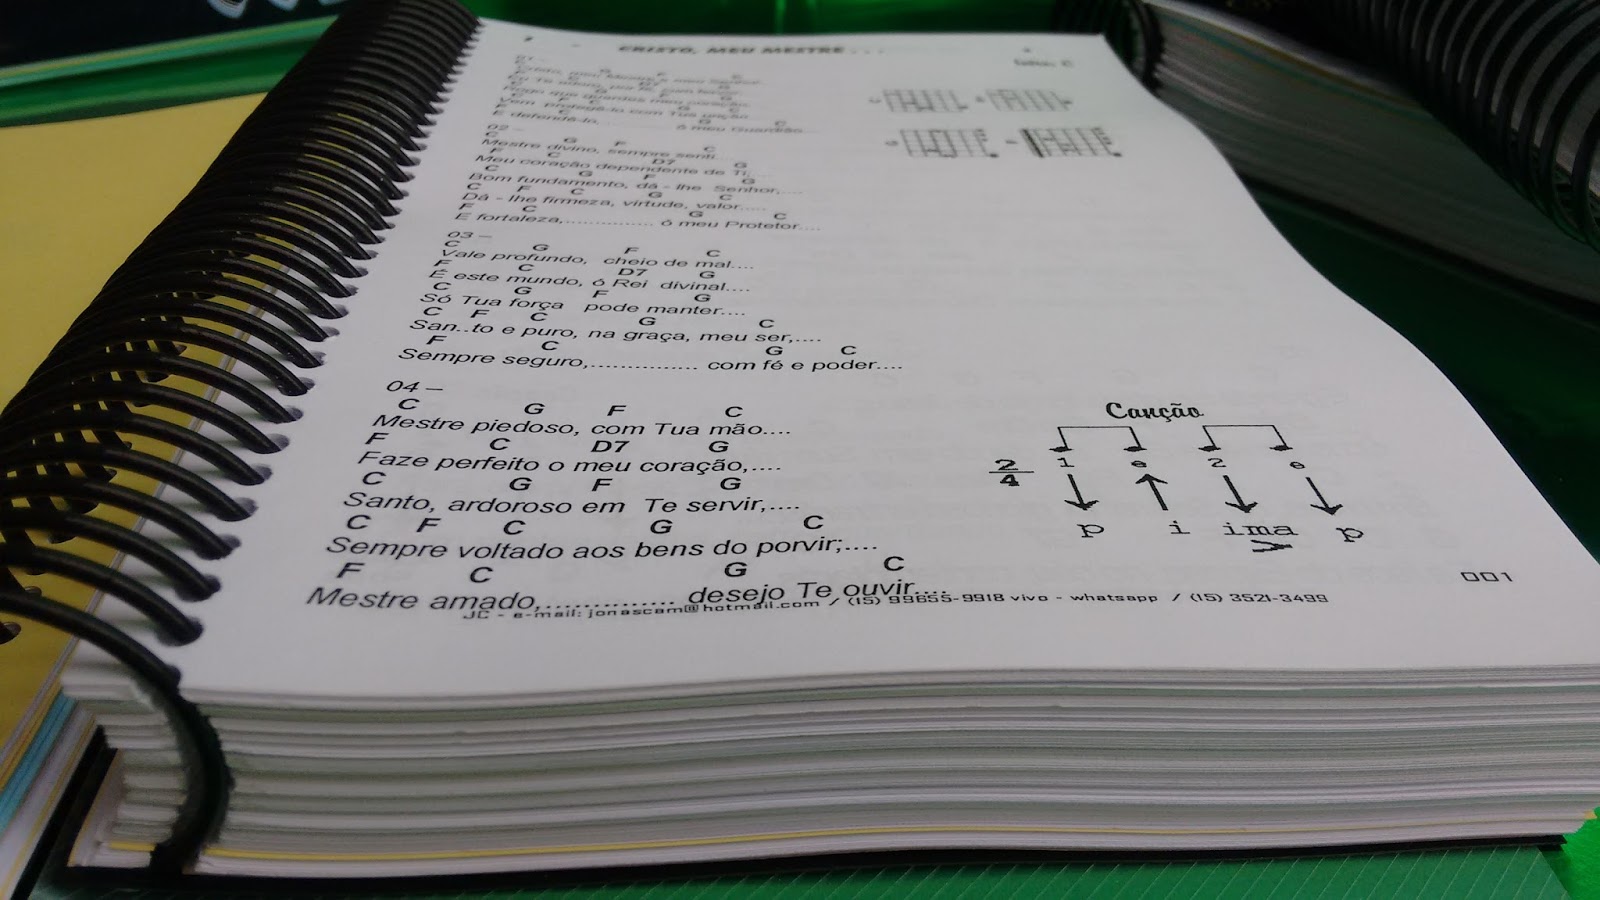 CRISTO, MEU MESTRE...
01 –
G F C
Cristo, meu Mestre e meu Senhor,
Rogo que guardes meu coração,
Vem protegê-lo com Tua unção
G C
E defendê-lo, ........ ó meu Guardião...
02 –
C G F C
Mestre divino, sempre senti....
F C D7 G
Meu coração dependente de Ti,...
C G F G
Bom fundamento, dá - lhe Senhor,....
C F C G C
Dá - lhe firmeza, virtude, valor.....
F C G C
E fortaleza,................ ó meu Protetor....
03 –
C G F C
Vale profundo, cheio de mal....
F C D7 G
É este mundo, ó Rei divinal....
C G F G
Só Tua força pode manter....
C F C G C
San..to e puro, na graça, meu ser,....
F C G C
Sempre seguro,................ com fé e poder....
04 –
C G F C
Mestre piedoso, com Tua mão....
F C D7 G
Faze perfeito o meu coração,....
C G F G
Santo, ardoroso em Te servir,....
C F C G C
Sempre voltado aos bens do porvir;....
F C G C
Mestre amado,............... desejo Te ouvir....
Canção
2/4 1 e 2 e
p i ima p
>
001
JC - e-mail: jonascam@hotmail.com / (15) 99655-9918 vivo - whatsapp / (15) 3521-3499